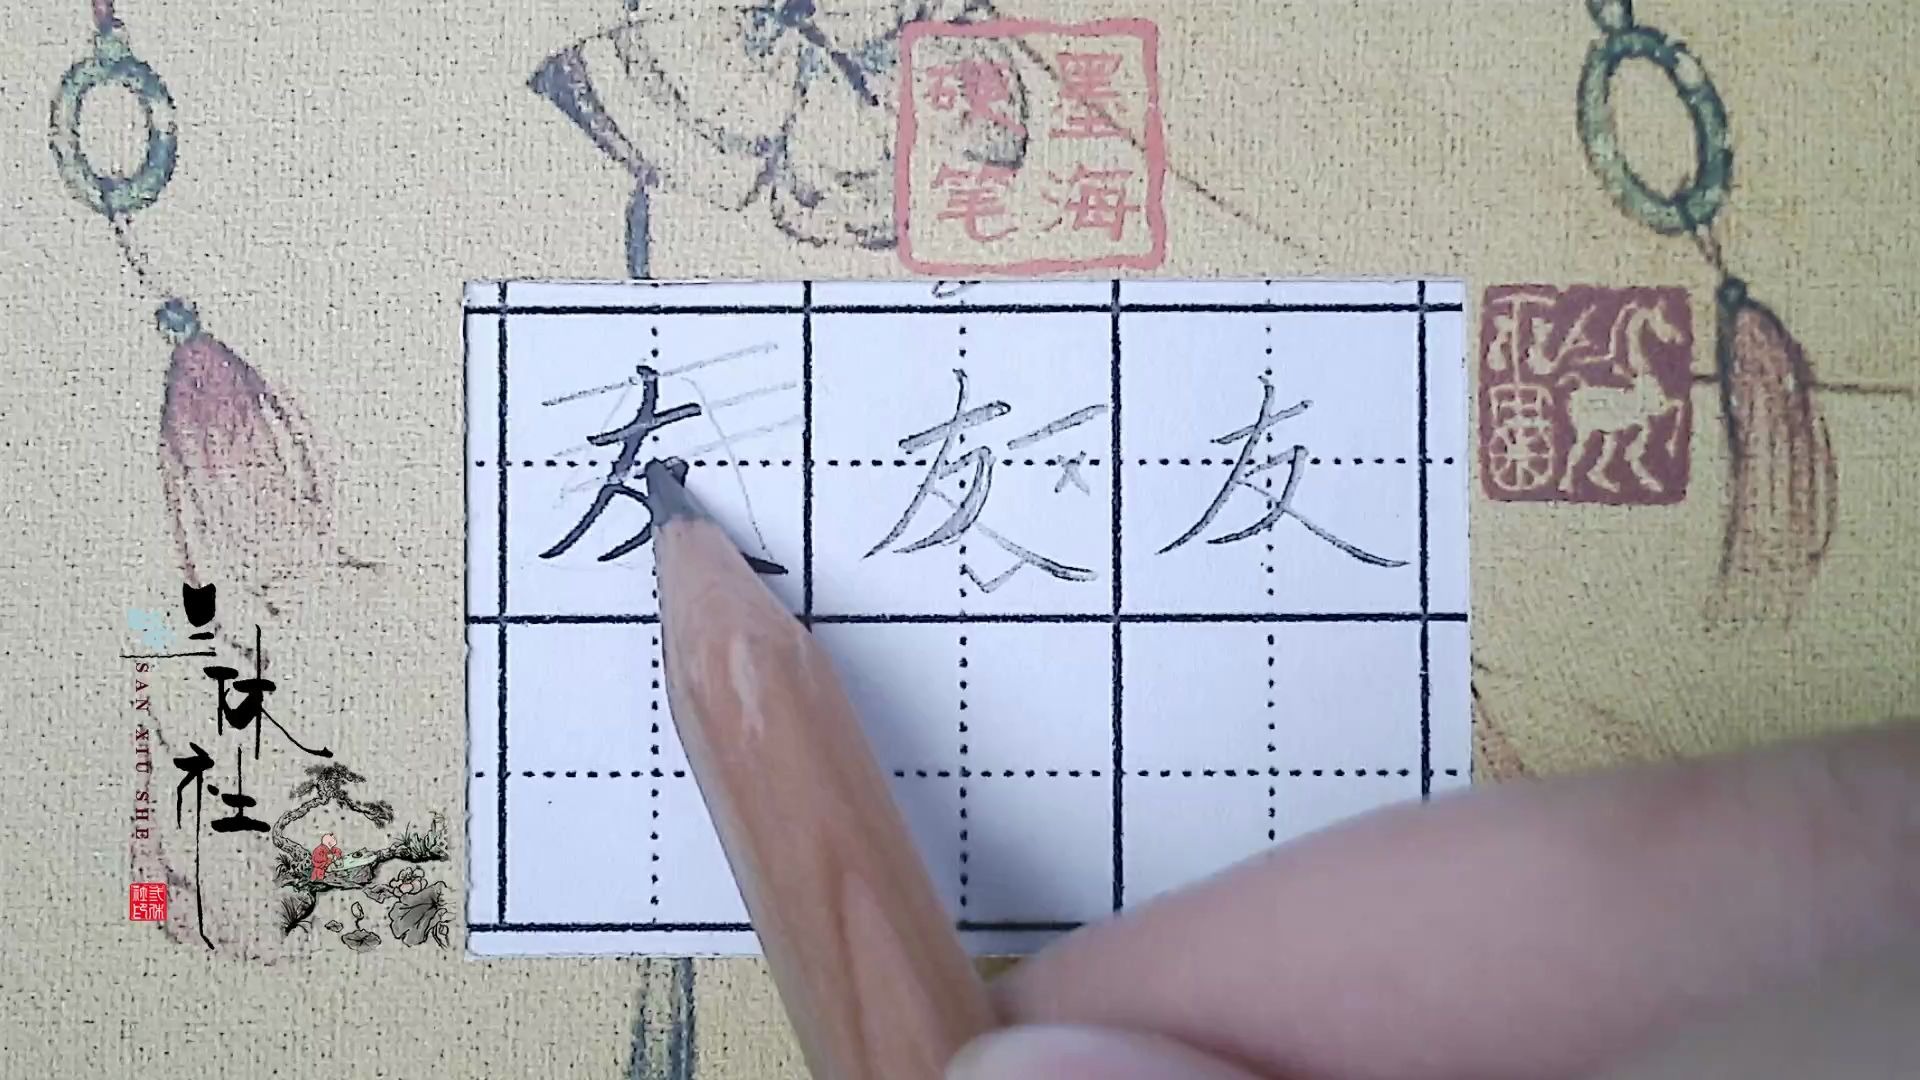 墨海
硬笔
友 友 友
三休社
SAN XIU SHE